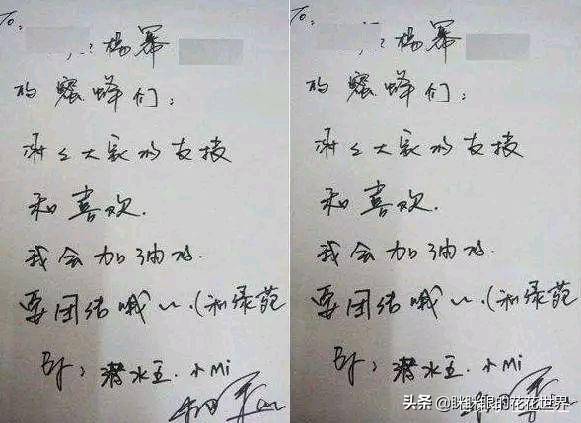 To:
杨幂
的蜜蜂们:
谢谢大家的支持
和喜欢.
我会加油的.
要团结哦~~.(和绿苑
By: 潜水王.小Mi
To:
杨幂
的蜜蜂们:
谢谢大家的支持
和喜欢.
我会加油的.
要团结哦~~.(和绿苑
By: 潜水王.小Mi
头条 @眯眯眼的花花世界